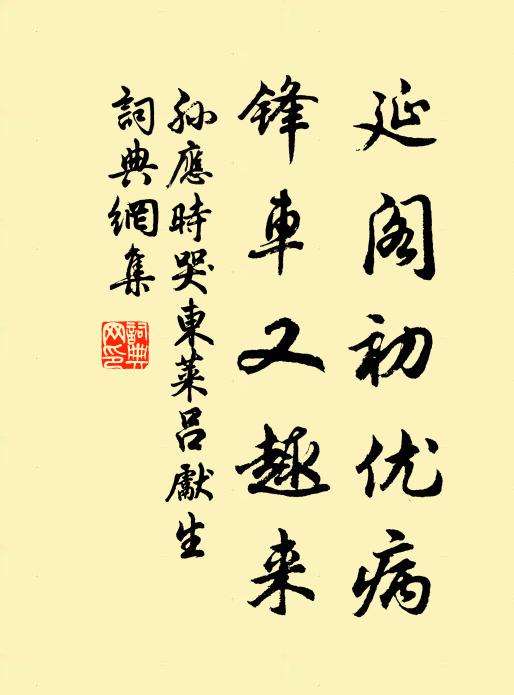 延阁初优病
锋車又趣来
孙應時哭東萊吕獻生
詞典網集
詞典网印